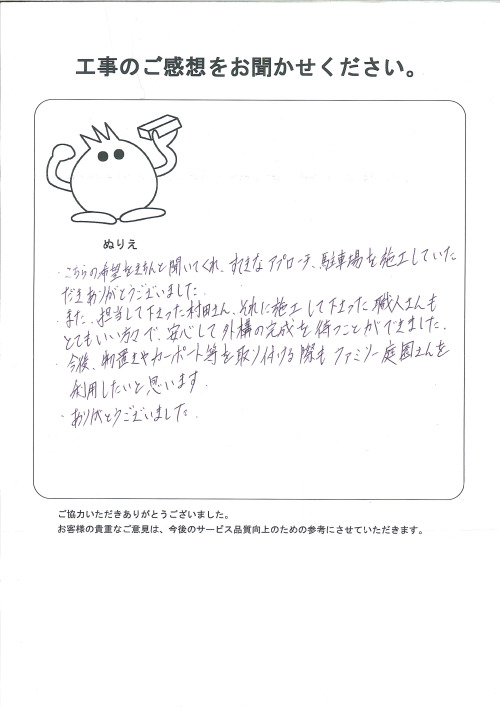 工事のご感想をお聞かせください。
ぬりえ
・こちらの希望をきちんと聞いてくれ、すてきなアプローチ、駐車場を施工していた
だきありがとうございました。
・また、担当して下さった村田さん、それに施工して下さった職人さんも
とてもいい方々で、安心して外構の完成を待つことができました。
・今後、物置きやカーポート等を取り付ける際もファミリー庭園さんを
利用したいと思います。
・ありがとうございました。
ご協力いただきありがとうございました。
お客様の貴重なご意見は、今後のサービス品質向上のための参考にさせていただきます。